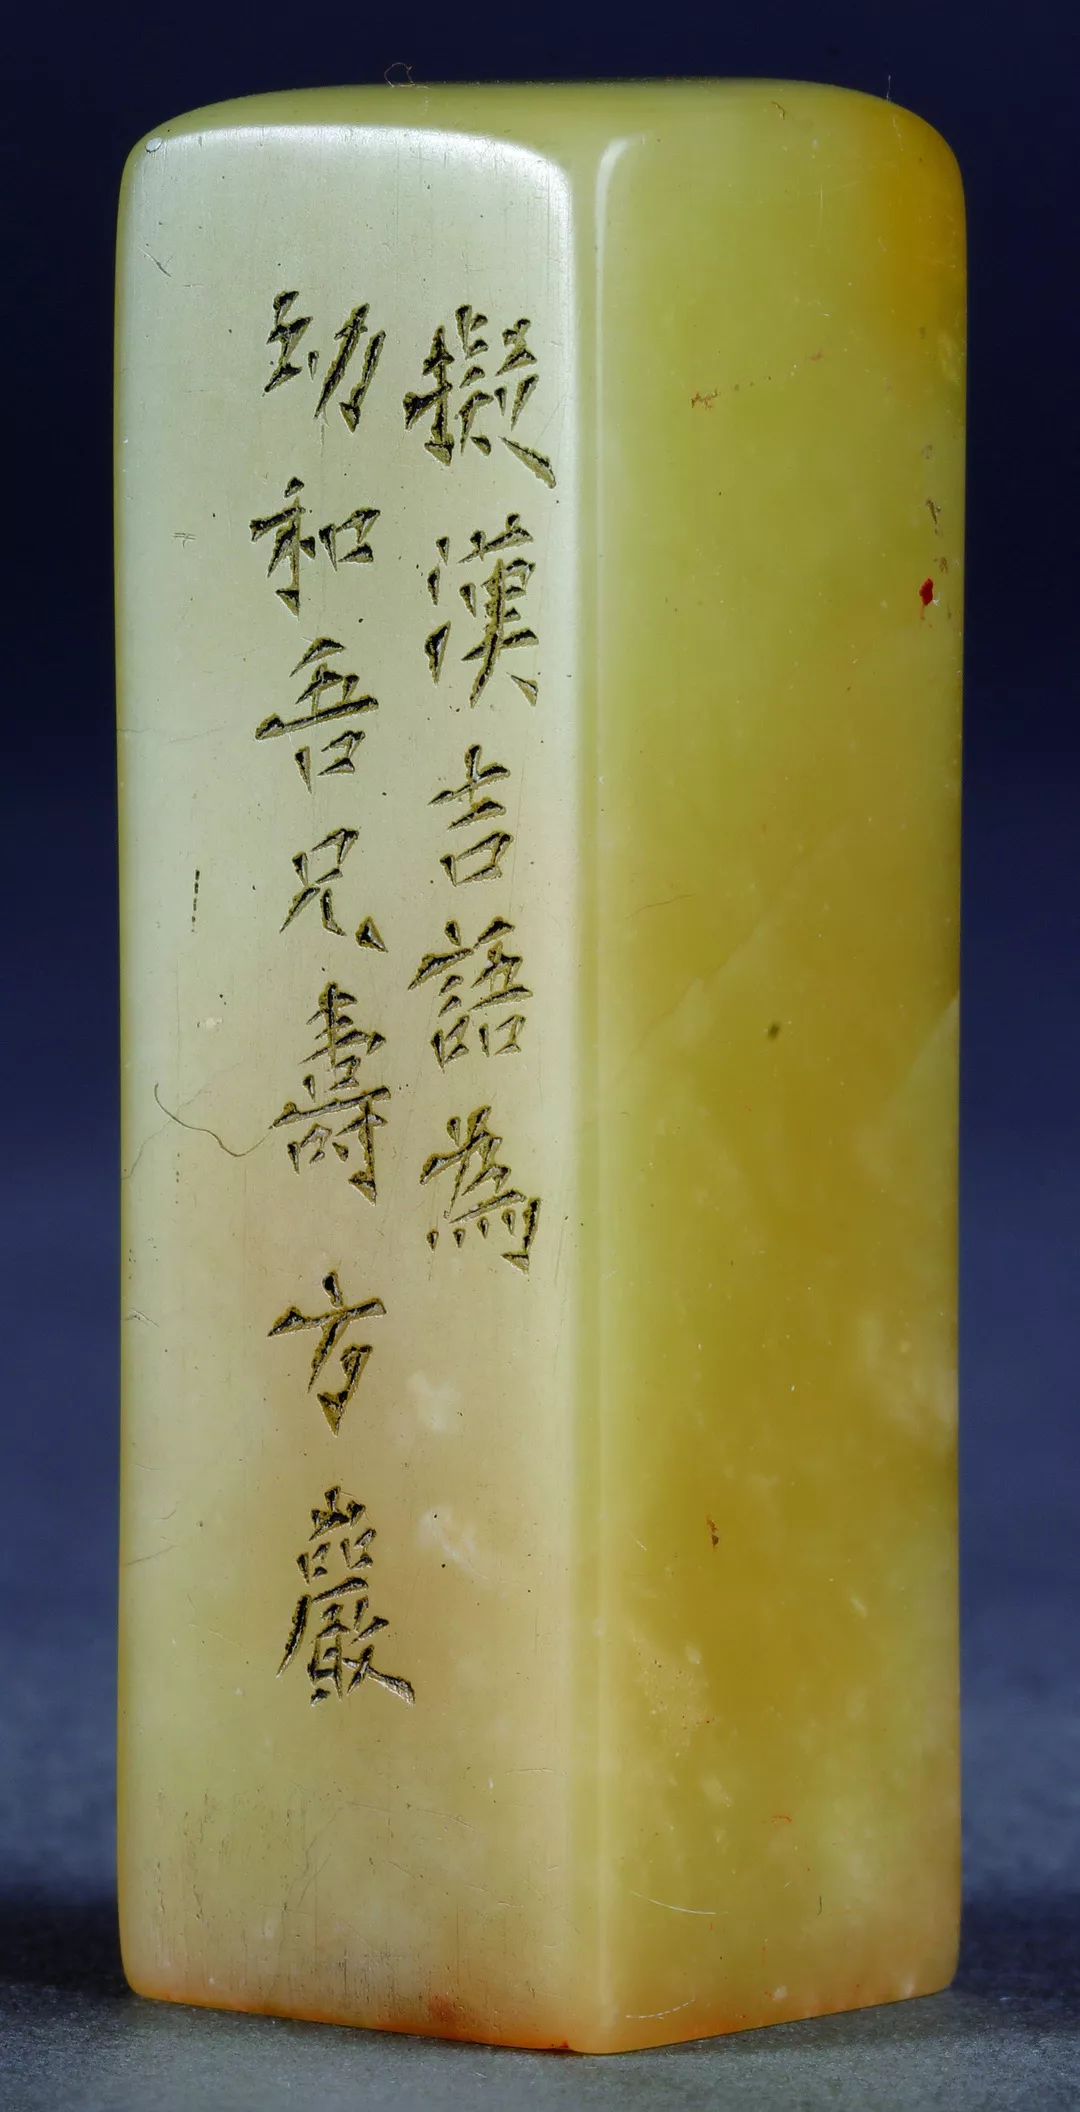 擬漢吉語為
幼和吾兄壽方巖